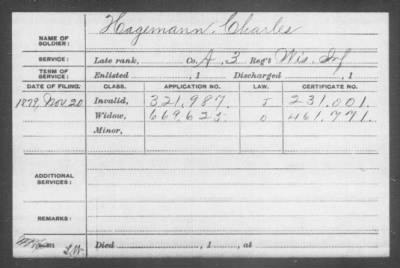 NAME OF SOLDIER: Hagemann, Charles
SERVICE: Late rank, Co. A, 3 Reg't Wis. Inf
TERM OF SERVICE: Enlisted , 1 Discharged , 1
DATE OF FILING: CLASS. APPLICATION NO. LAW. CERTIFICATE NO.
1879, Nov. 20 Invalid, 321,987. J 231,001.
Widow, 669,625 O 461,771.
Minor,
ADDITIONAL SERVICES:
REMARKS:
Died , 1 , at